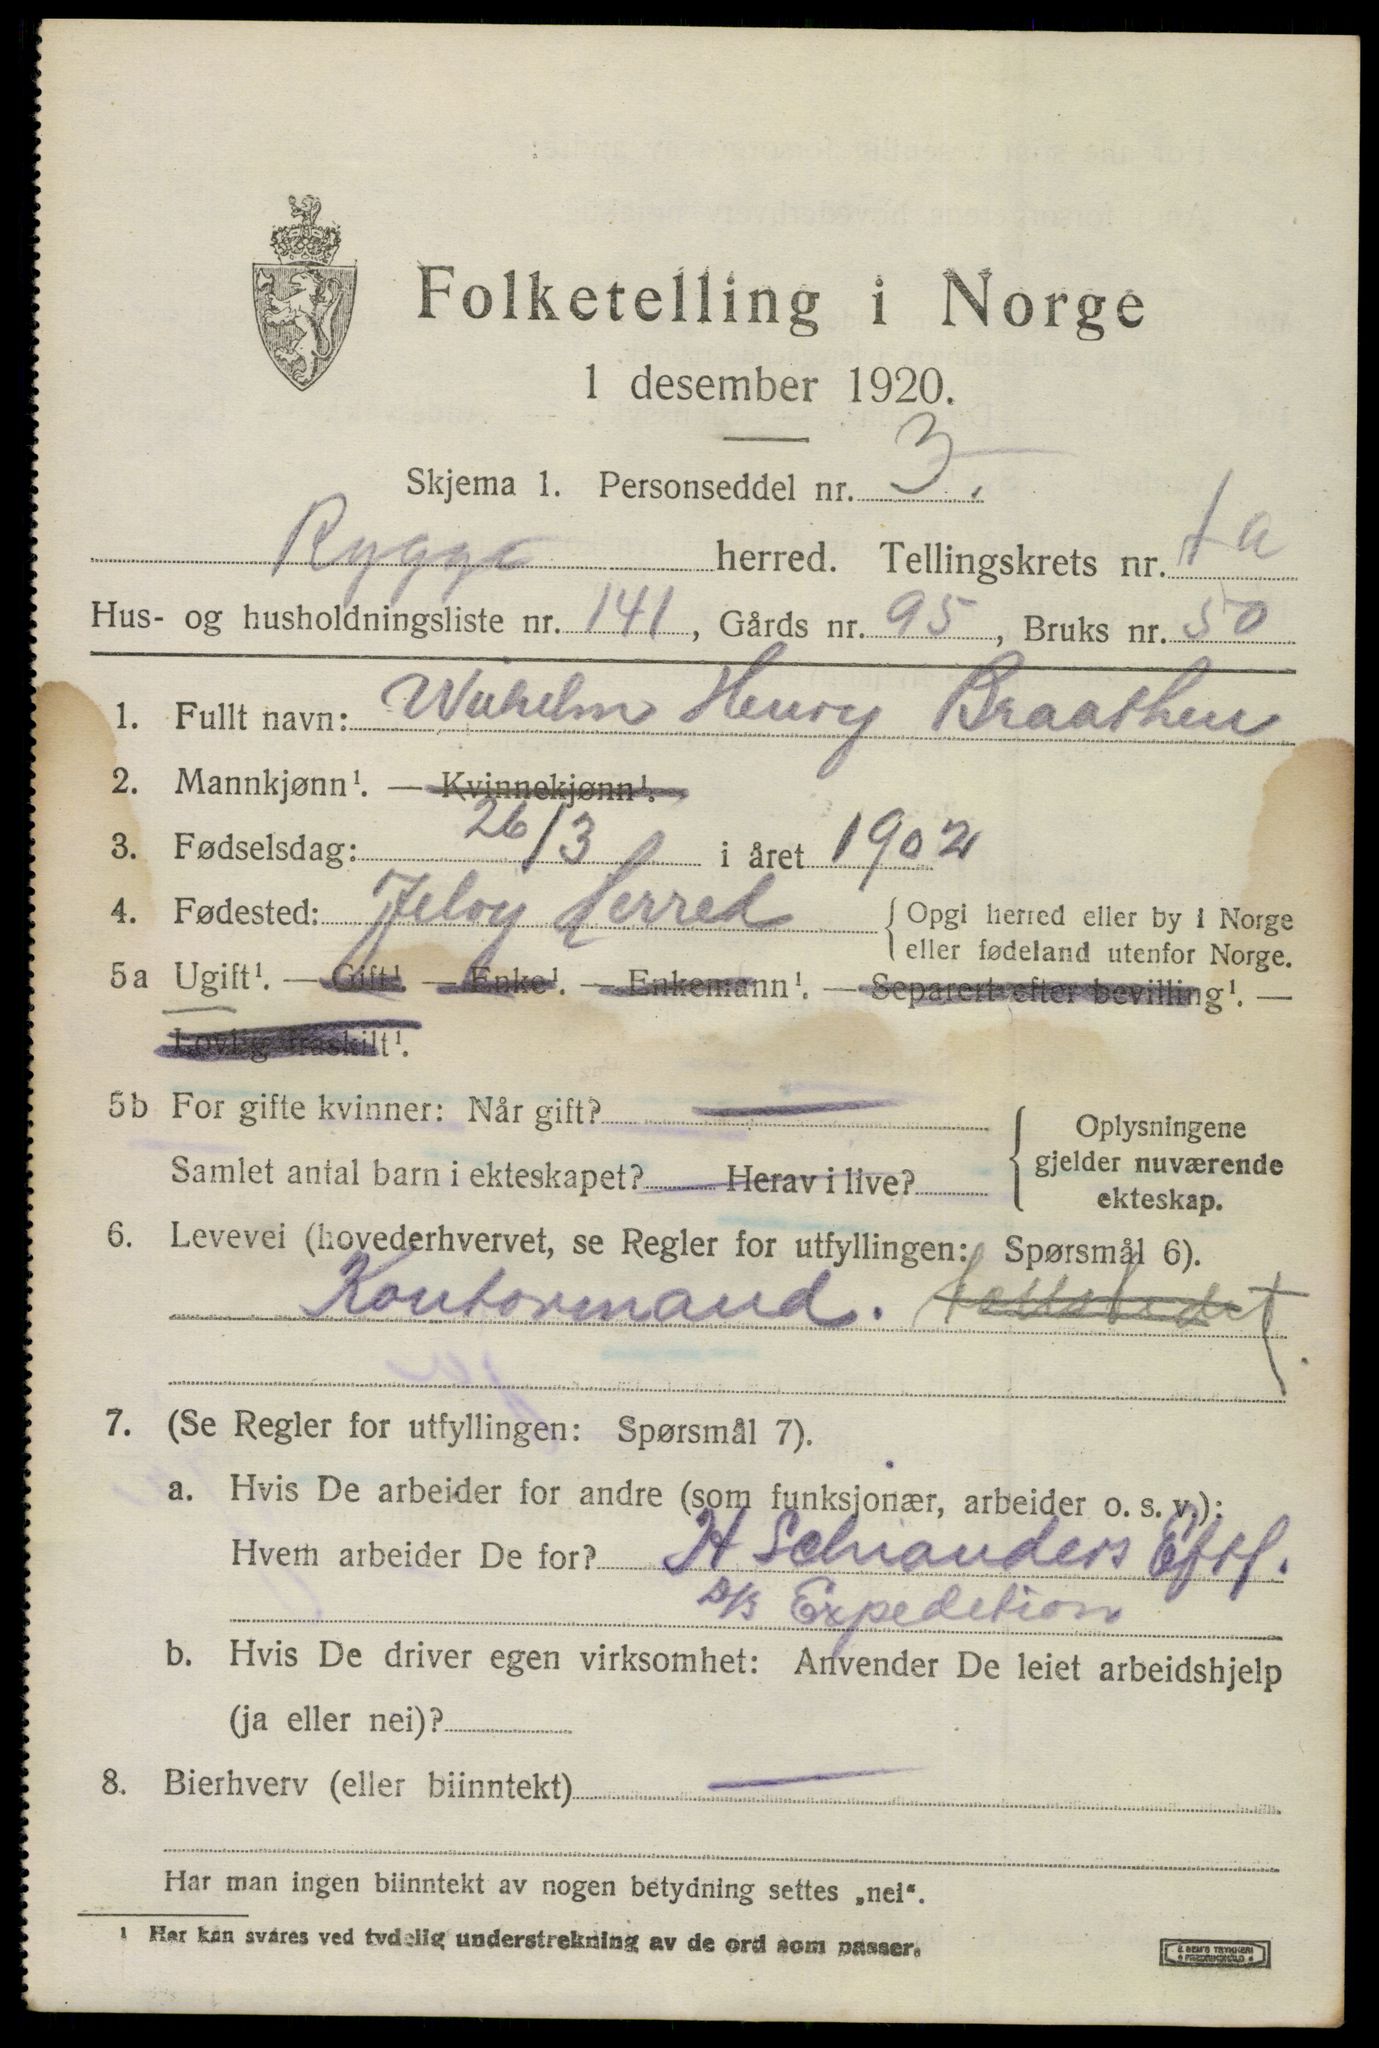 Folketelling i Norge
1 desember 1920.
Skjema 1. Personseddel nr. 3.
Rygge herred. Tellingskrets nr. 1a
Hus- og husholdningsliste nr. 141, Gårds nr. 95, Bruks nr. 50
1. Fullt navn: Wilhelm Henry Braathen
2. Mannkjønn¹. — Kvinnekjønn¹.
3. Fødselsdag: 26/3 i året 1902
4. Fødested: Jeløy Herred { Opgi herred eller by i Norge
eller fødeland utenfor Norge.
5a Ugift¹. — Gift¹. — Enke¹. — Enkemann¹. — Separert efter bevilling¹. —
Lovlig fraskilt¹.
5b For gifte kvinner: Når gift?
Samlet antal barn i ekteskapet? Herav i live?
{ Oplysningene
gjelder nuværende
ekteskap.
6. Levevei (hovederhvervet, se Regler for utfyllingen: Spørsmål 6).
Kontormand.
7. (Se Regler for utfyllingen: Spørsmål 7).
a. Hvis De arbeider for andre (som funksjonær, arbeider o. s. v.):
Hvem arbeider De for? H Schianders Eftf.
D/S Expedition
b. Hvis De driver egen virksomhet: Anvender De leiet arbeidshjelp
(ja eller nei)?
8. Bierhverv (eller biinntekt)
Har man ingen biinntekt av nogen betydning settes „nei“.
¹ Her kan svares ved tydelig understrekning av de ord som passer.
E SEM'S TRYKKERI
FREDRIKSHALD